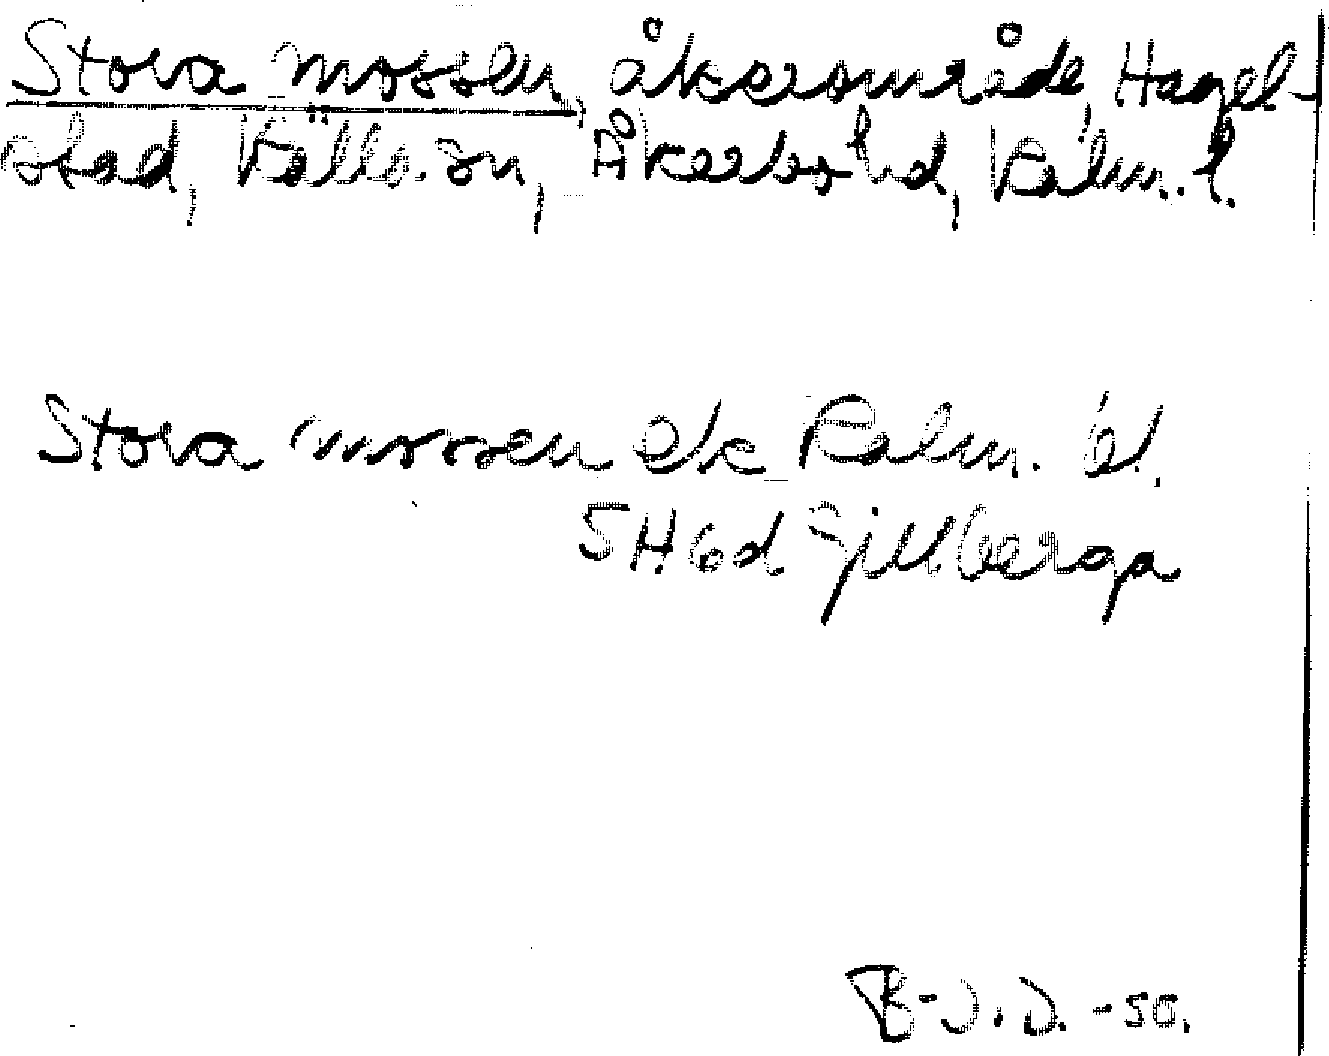 Stora mossen, åkerområde, Hagel-
stad, Källa sn, Åkerbo hd, Kalm. l.
Stora mossen ek Kalm. l.
5H6d Gillberga
B-J.D. -50.